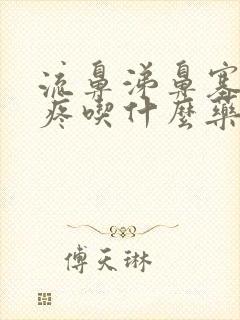 流鼻涕鼻塞
疼喫什麼藥
傅天琳